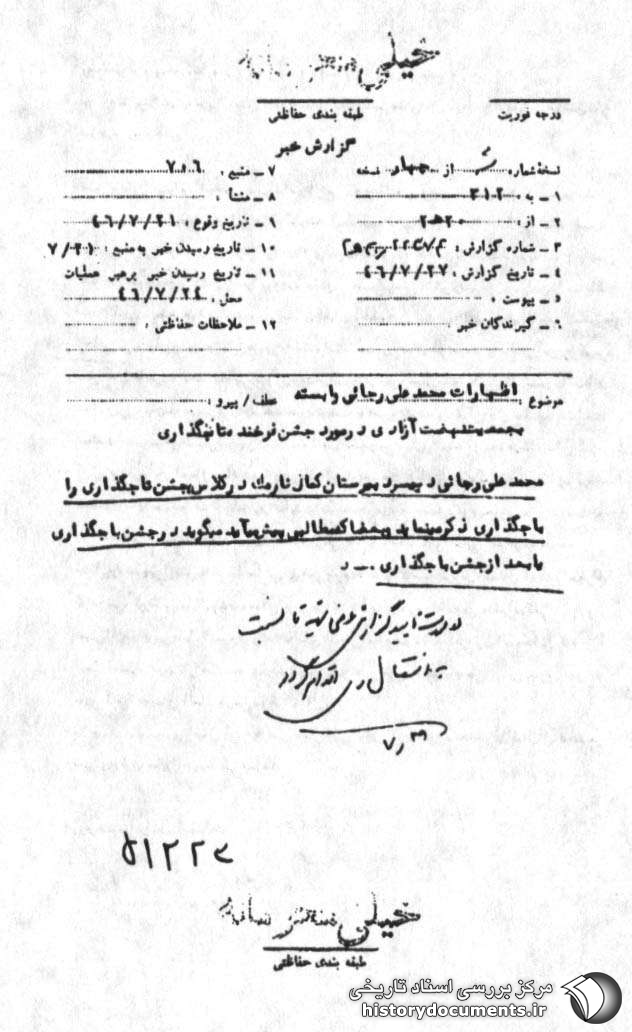 خیلی محرمانه
درجه فوریت
طبقه بندی حفاظتی
گزارش خبر
نسخه شماره از چهار نسخه
۷ ـ منبع : ۷۰۶
۱ ـ به : ۳۱۲
۸ ـ منشأ :
۲ ـ از : ۲۰ﻫ۲۰
۹ ـ تاریخ وقوع : ۴۶/۷/۲۱
۳ ـ شماره گزارش :
۱۰ ـ تاریخ رسیدن خبر به منبع : ۷/۲۱
۴ ـ تاریخ گزارش : ۴۶/۷/۲۷
۱۱ ـ تاریخ رسیدن خبر برهبر عملیات
محل : ۴۶/۷/۲۴
۵ ـ پیوست :
۶ ـ گیرندگان خبر :
۱۲ ـ ملاحظات حفاظتی :
موضوع : اظهارات محمد علی رجائی وابسته عطف / پیرو :
بجمعیت نهضت آزادی در مورد جشن فرخنده تاجگذاری
محمد علی رجائی دبیر دبیرستان کمال نارمک در کلاس جشن تاجگذاری را
باجگذاری ذکر مینماید و بعضا که مطالبی پیش میآید میگوید در جشن باجگذاری
یا بعد از جشن باجگذاری . ـ د
در صورت تایید گزارش تهیه تا نسبت
به انتقال وی اقدام گردد
۷٫۲۹
۵۱۲۲۳
خیلی محرمانه
طبقه بندی حفاظتی
مرکز بررسی اسناد تاریخی
historydocuments.ir